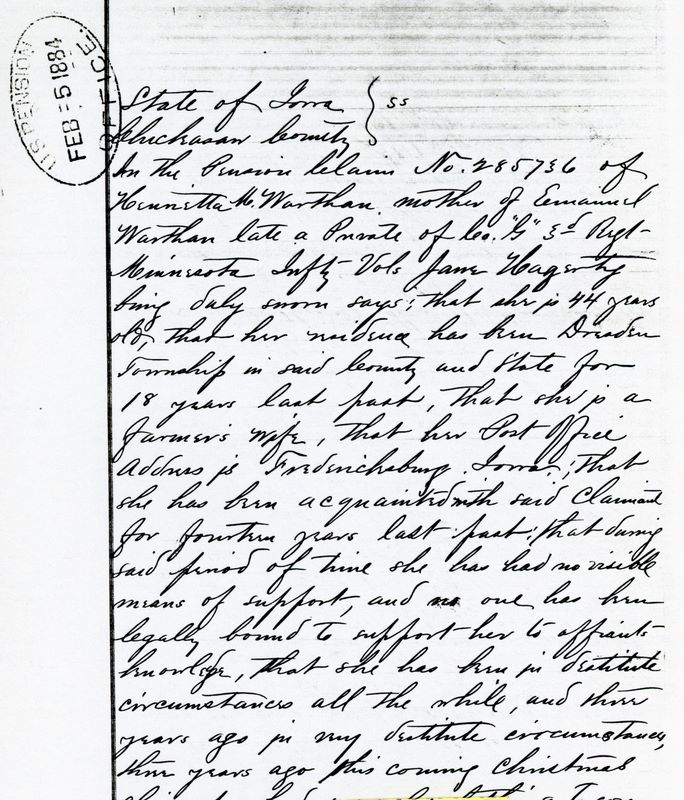 U.S. PENSION OFFICE.
FEB 5 1884
State of Iowa } ss
Chickasaw County
In the Pension Claim No. 285736 of
Henrietta M. Warthan mother of Emanuel
Warthan late a Private of Co. "G" 3d Regt
Minnesota Infty Vols Jane Hagerty
being duly sworn says; that she is 44 years
old, that her residence has been Dresden
Township in said County and State for
18 years last past, that she is a
farmer's wife, that her Post Office
address is Fredericksburg Iowa; that
she has been acquainted with said Claimant
for fourteen years last past; that during
said period of time she has had no visible
means of support, and no one has been
legally bound to support her to affiants
knowledge, that she has been in destitute
circumstances all the while, and three
years ago in very destitute circumstances,
three years ago this coming Christmas